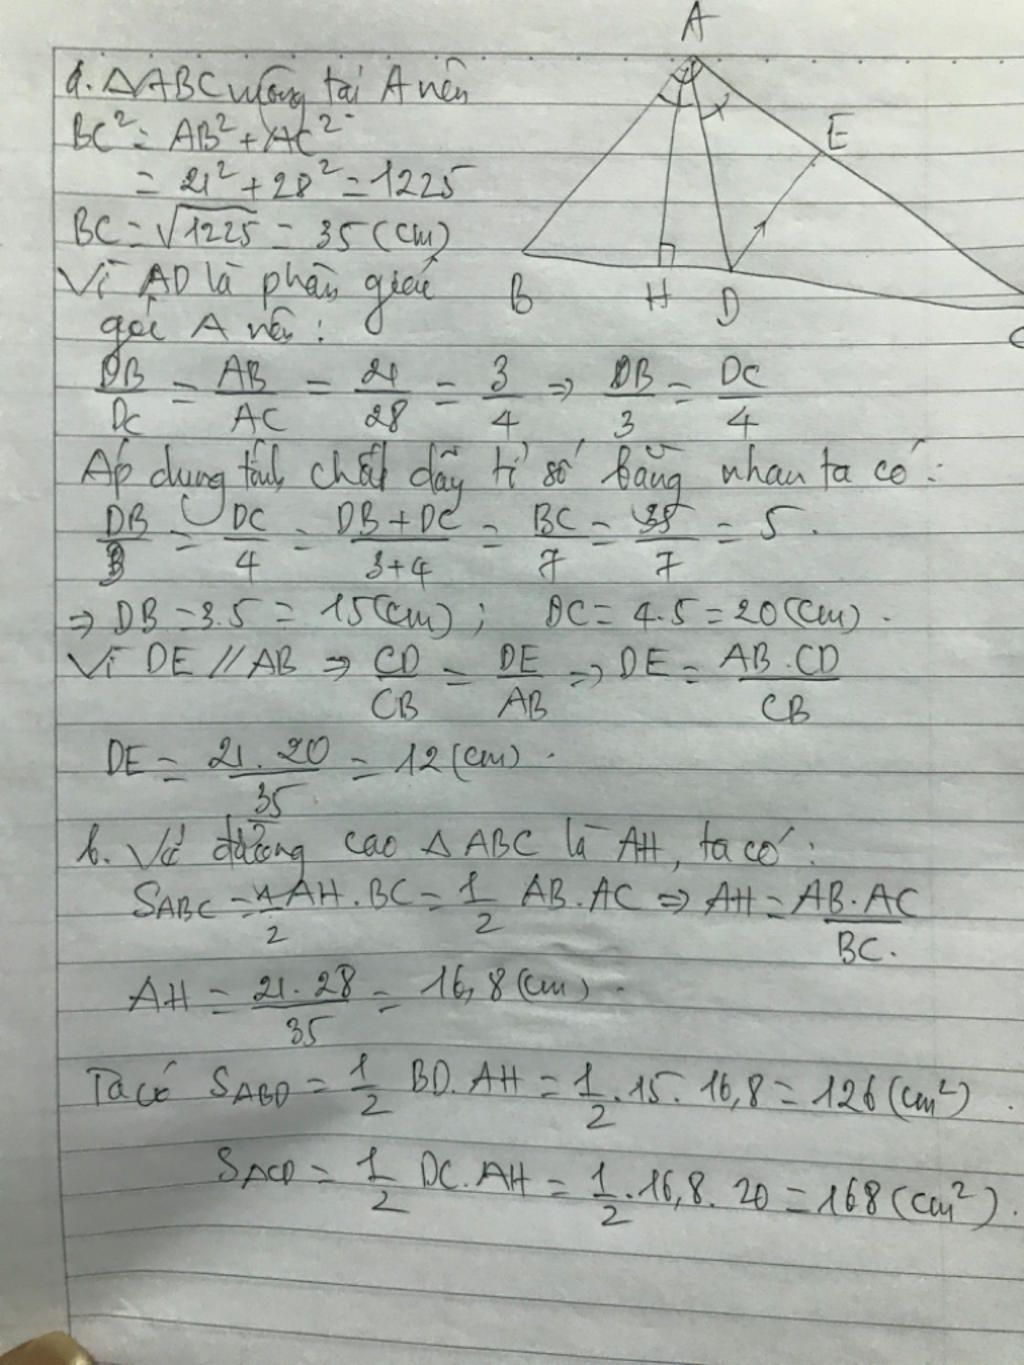 A
a. ΔABC vuông tại A nên
BC² = AB² + AC²
= 21² + 28² = 1225
BC = √1225 = 35 (cm)
Vì AD là phân giác
góc A nên :
E
B H D C
DB/DC = AB/AC = 21/28 = 3/4 => DB/3 = DC/4
Áp dụng tính chất dãy tỉ số bằng nhau ta có :
DB/3 = DC/4 = DB+DC/3+4 = BC/7 = 35/7 = 5 .
=> DB = 3.5 = 15 (cm) ; DC = 4.5 = 20 (cm) .
Vì DE // AB => CD/CB = DE/AB => DE = AB.CD/CB
DE = 21.20/35 = 12 (cm) .
b. Vẽ đường cao Δ ABC là AH, ta có :
SABC = 1/2 AH.BC = 1/2 AB.AC => AH = AB.AC/BC.
AH = 21.28/35 = 16,8 (cm) .
Ta có SABD = 1/2 BD.AH = 1/2.15.16,8 = 126 (cm²) .
SACD = 1/2 DC.AH = 1/2.16,8.20 = 168 (cm²) .